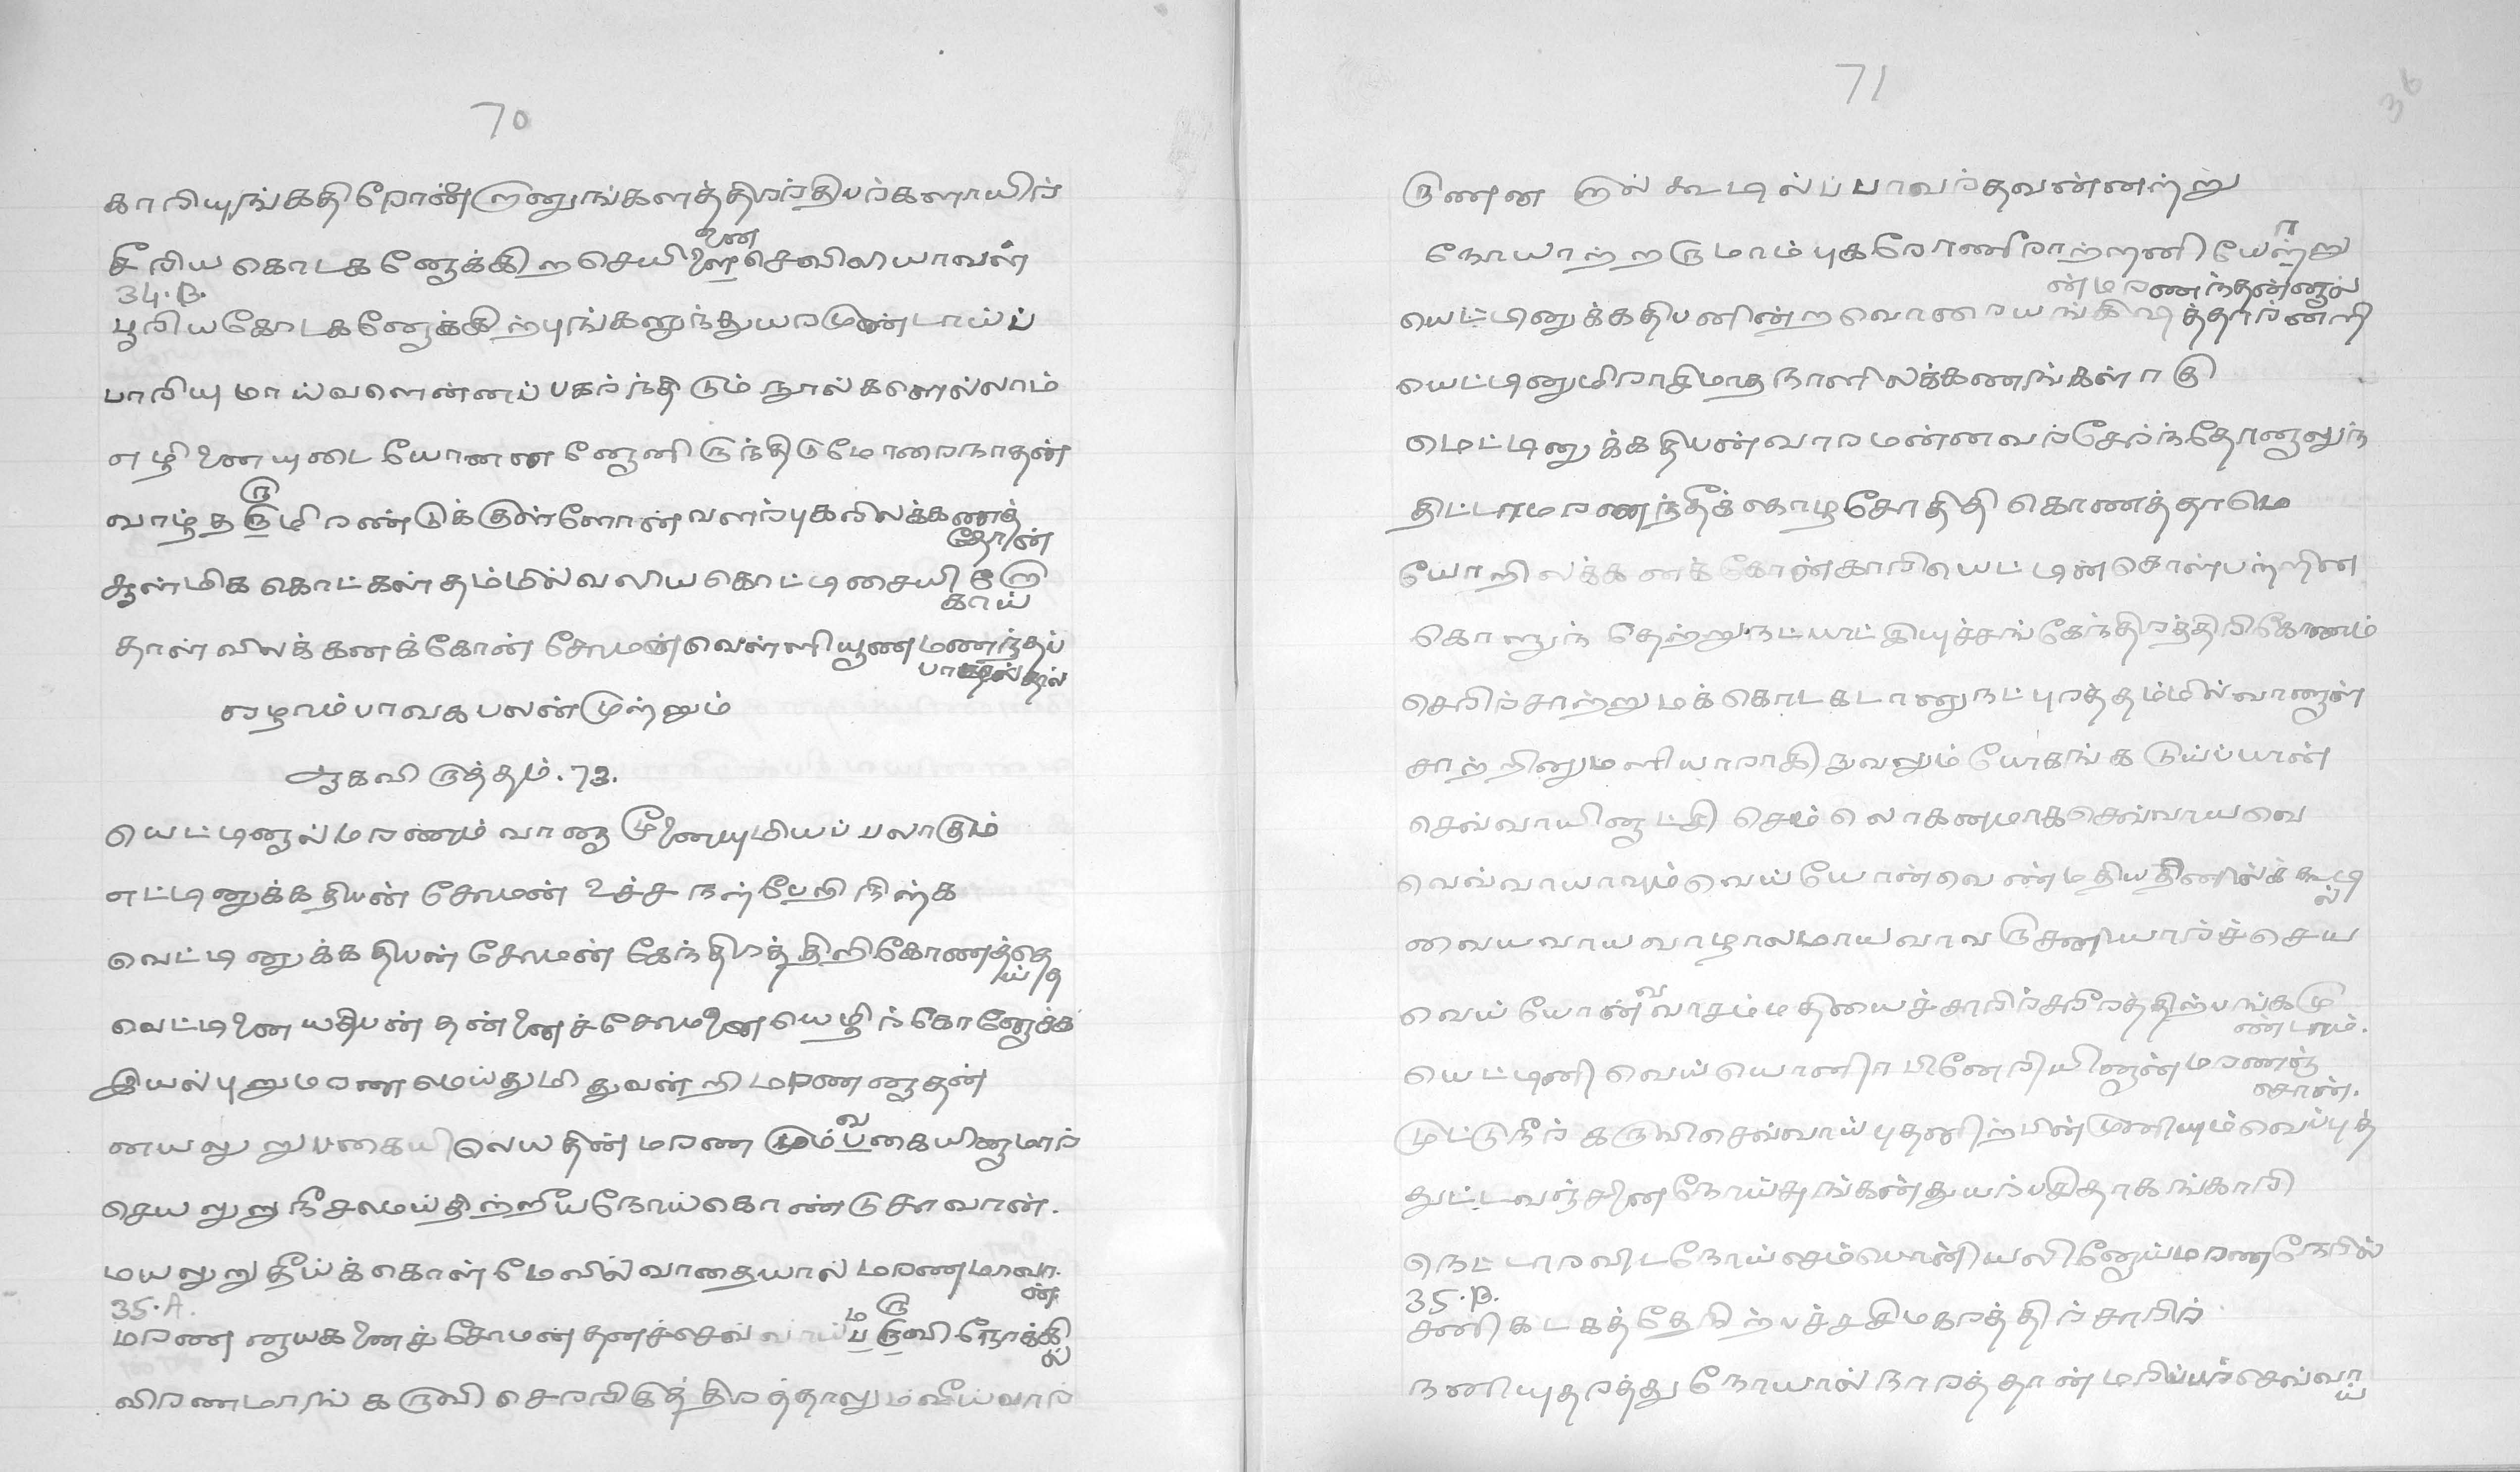 70
காரியுங்கதிரோன்றானுங்களத்திரந்திபர்களாயிற்
சீரிய கொடக னேக்கிற செயினை செவிலியாவள்
34.B.
பூரியகோடகனேக்கிற்புங்கனுந்துயரமுண்டாய்ப்
பாரியுமாய்வளென்னப் பகர்ந்திடும் நூல்களெல்லாம்
எழினையுடையோனன னேனிருந்திடுமோரைநாதன்
வாழ்தருமிரண்டுக்குள்ளோன் வளர்புகரிலக்கனத்தோன்
ஆள்மிக கொட்கள் தம்மில் வலிய கொட்டிசையிறேகாய்
தாள் விலக்கனக்கோன் சோமன் வெள்ளியூண மணந்தப்
எழாம் பாவகபலன் முற்றும்
ஆகவிருத்தம். 73.
யெட்டினால் மரணம் வானா மூனையுமியப் பலாகும்
எட்டினுக்கதிபன் சோமன் உச்ச நன்பேறி நிள்க
வெட்டினுக்கதிபன் சோமன் கேந்திரத்திறிகோணத்தெய்த
வெட்டினை யதிபன் தன்னைச் சோமனை யெழிற்கோனேக்க
இயல்புறுமரண மெய்துமிதுவன்றி மரணனாதன்
னயலுறு பகையிலெயதின் மரணமும்வகையினாமார்
செயலுறு நீசமெய்திற்றீயநோய்கொண்டு சாவான்.
மயலுறு தீய்க்கொள் மேவில் வாதையால் மரணமாவான்
35.A.
மரணனாயகனைச் சோமன் தனச்செவ்வாய்மருவி நோக்கில்
விரணமாங் கருவி செரரிகுத்திரத்தாலும்வீய்வார்
71
36
ருணன றால் கூடில்ப் பாவர்தவன்னற்று
நோயாற்றருமாம் புகரோணிராற்றனி யேற்று
ன்மரணந்தன்னால்
யெட்டினுக்கதிபனின்றவொரையங்கிஷத்தாரன்றி
யெட்டினுமிராசிமாதநாளிலக்கணங்கள் ாகு
மெட்டினுக்கதியன்வாரமன்னவர்சேர்ந்தோனாலுந
திட்டாமரணந்தீக்கொழசோதிதிகொணத்தாமெ
யோறிலக்கனக்கோன்காரியெட்டின்கொள்பற்றின
கொளுந் தெற்றுநட்பாட்இயுச்சங் கேந்திரத்திரிகோணம்
செரிற்சாற்றுமக்கொடகடானுநட்புரத்தம்மில்வானான்
சாற்றினுமளியாராகிநுவலும் யோகங்கடுய்ப்பான்
செவ்வாயினாட்சி செம்லொகனமாகசெவ்வாயவெ
வெவ்வாயாவும்வெய்யோன்வெண்மதியதினில்க்கூடில்
வையவாயவாழாலமாயவாவருசனியார்ச்செய
வெய்யோன்வாசம்மதியைச்சாரிற்சரீரத்திற்பங்கமுண்டாம்.
யெட்டினி வெய்யொனிா பினேரியினான்மரணஞ்சொன்.
முட்டுநீர் கருவிசெவ்வாய் புதனிற்பின்முனியும்வெப்புத்
துட்டவஞ்சினநோய்சுங்கன்துயர்பசிதாகங்காரி
நெட்டாரவிடநோய்செம்யொன்றியலினேய்மரணநேரில்
35.B.
சனிகடகத்தேறிற்பச்சசிமகரத்திற்சாரில்
நனியுதரத்துநோயால்நாரத்தான்மரிப்பர்செவ்வாய்